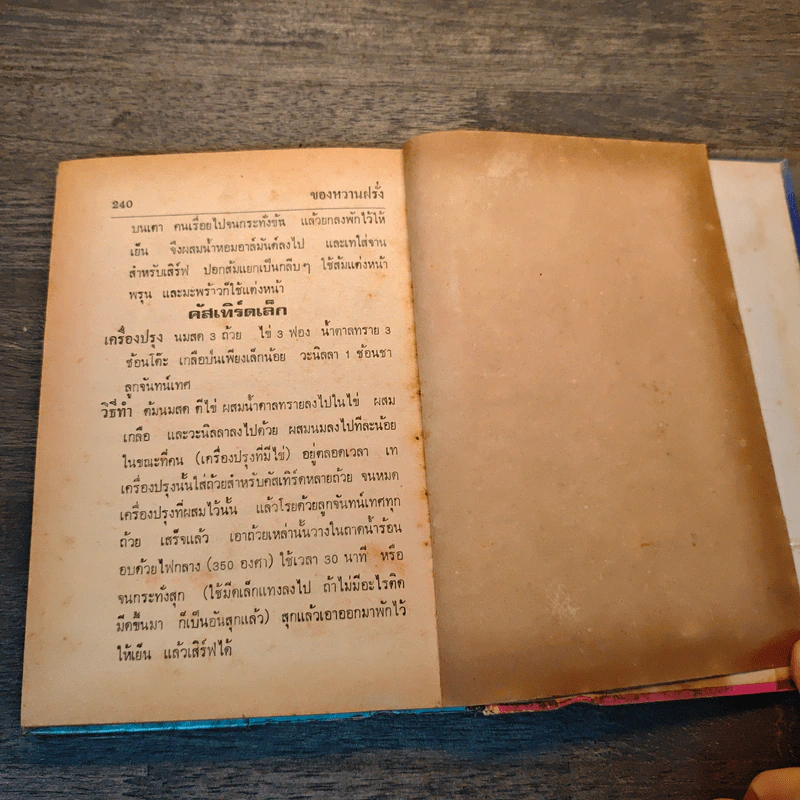 240 ของหวานฝรั่ง
บนเตา คนเรื่อยไปจนกระทั่งข้น แล้วยกลงพักไว้ให้
เย็น จึงผสมน้ำหอมอาล์มันด์ลงไป และเทใส่จาน
สำหรับเสิร์ฟ ปอกส้มแยกเป็นกลีบๆ ใช้ส้มแต่งหน้า
พรุน และมะพร้าวก็ใช้แต่งหน้า
คัสเทิร์ดเล็ก
เครื่องปรุง นมสด 3 ถ้วย ไข่ 3 ฟอง น้ำตาลทราย 3
ช้อนโต๊ะ เกลือป่นเพียงเล็กน้อย วะนิลลา 1 ช้อนชา
ลูกจันทน์เทศ
วิธีทำ ต้มนมสด ตีไข่ ผสมน้ำตาลทรายลงไปในไข่ ผสม
เกลือ และวะนิลลาลงไปด้วย ผสมนมลงไปทีละน้อย
ในขณะที่คน (เครื่องปรุงที่มีไข่) อยู่ตลอดเวลา เท
เครื่องปรุงนั้นใส่ถ้วยสำหรับคัสเทิร์ดหลายถ้วย จนหมด
เครื่องปรุงที่ผสมไว้นั้น แล้วโรยด้วยลูกจันทน์เทศทุก
ถ้วย เสร็จแล้ว เอาถ้วยเหล่านั้นวางในถาดน้ำร้อน
อบด้วยไฟกลาง (350 องศา) ใช้เวลา 30 นาที หรือ
จนกระทั่งสุก (ใช้มีดเล็กแทงลงไป ถ้าไม่มีอะไรติด
มีดขึ้นมา ก็เป็นอันสุกแล้ว) สุกแล้วเอาออกมาพักไว้
ให้เย็น แล้วเสิร์ฟได้